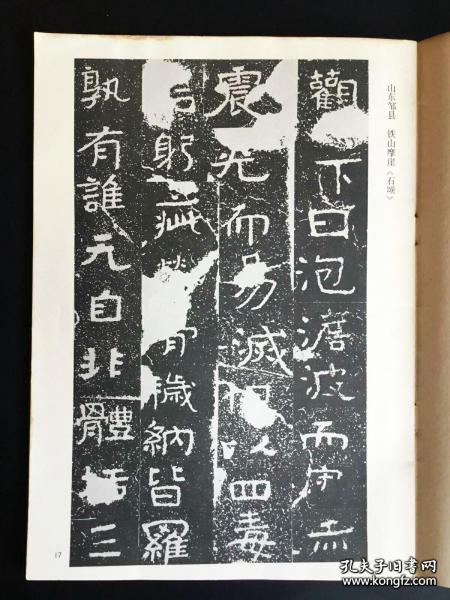 山东邹县 铁山摩崖《石颂》
觀下曰泡波而守
震光而易滅以四毒
躬穢納皆羅
孰有誰元自非體括三
17
孔夫子旧书网
www.kongfz.com